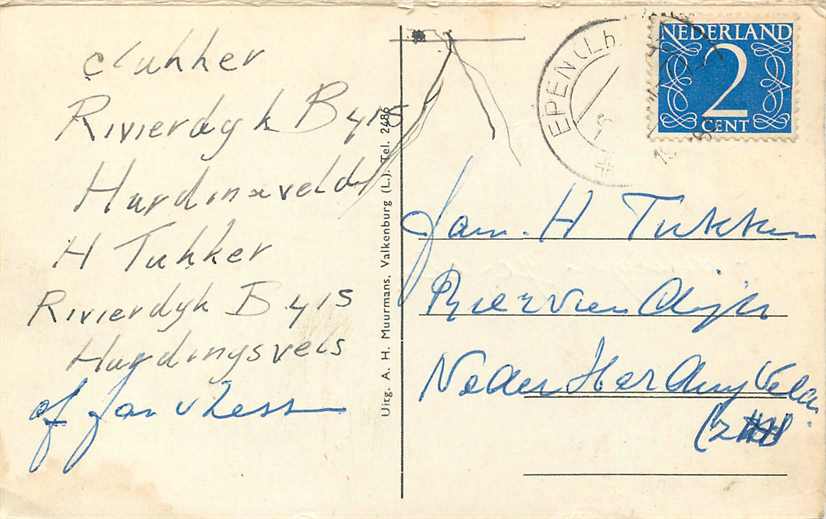 Tukker
Rivierdyk B 415
Hardinxveld
H Tukker
Rivierdyk B 415
Hardingsvels
af Jan v
Uitg. A. H. Muurmans, Valkenburg (L.) Tel. 2486
EPEN (Lb.
NEDERLAND
2
CENT
Fam. H Tukker
Neder Hardingsveld
(ZH)